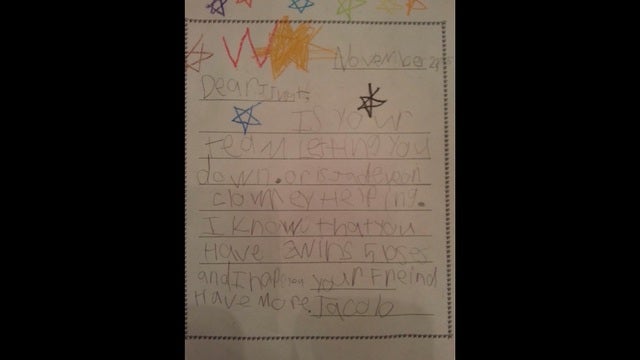 November
Dear
Is your
team letting you
down. or
clowney Helping.
I know that you
Have 3 wins 5 loses
and I hope you your Freind
Have more. Jacob